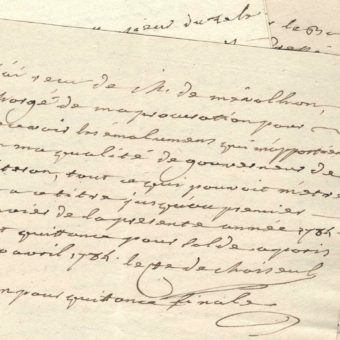 sieur du
la
reçu de M. de mévolhon,
chargé de ma procuration pour
recevoir les émolumens qui m'apportien
en ma qualité de gouverneur de
tout ce qui pouvoit m'etre
a ce titre jusqu'au premier
de la presente année 1784
quittance pour solde a paris
avril 1784. le de choiseul
pour quittance finale